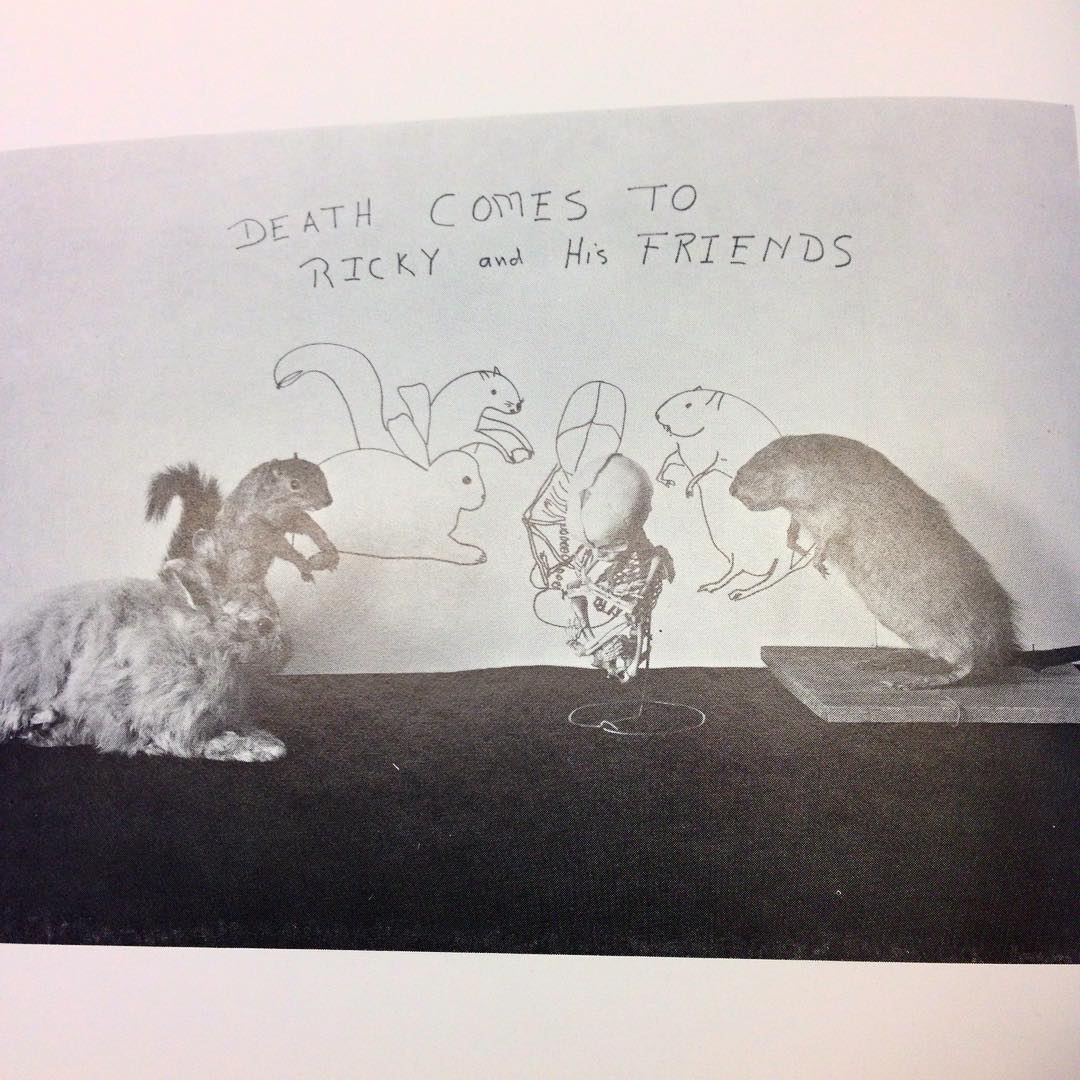 DEATH COMES TO
RICKY and His FRIENDS